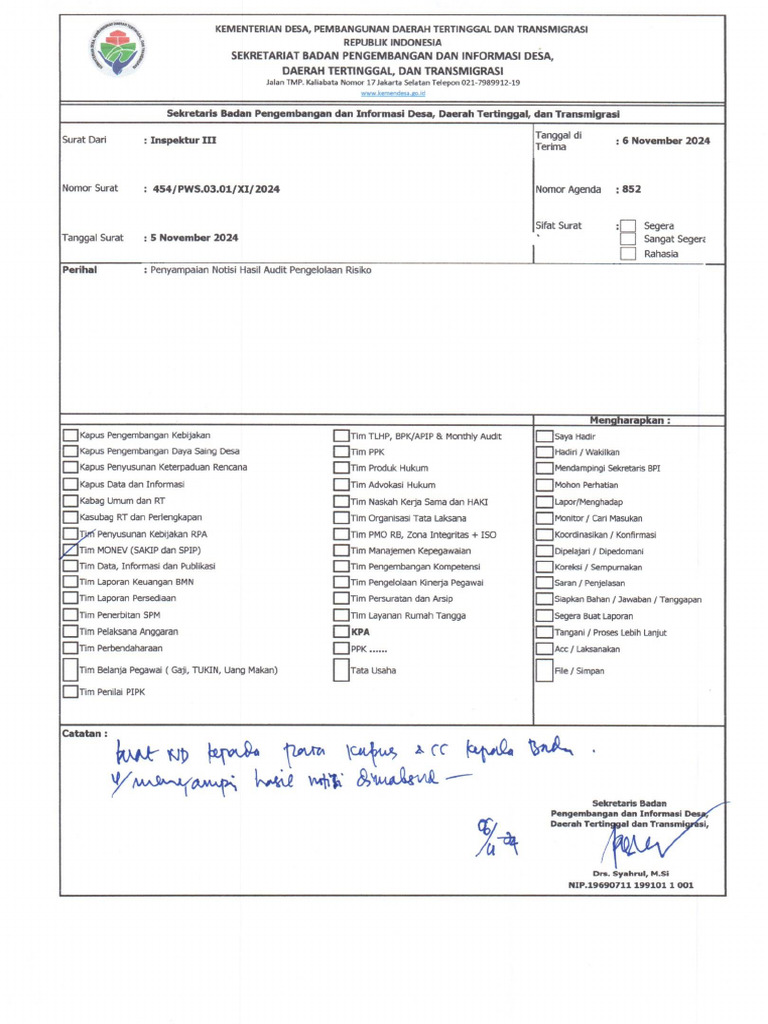 KEMENTERIAN DESA, PEMBANGUNAN DAERAH TERTINGGAL DAN TRANSMIGRASI
REPUBLIK INDONESIA
SEKRETARIAT BADAN PENGEMBANGAN DAN INFORMASI DESA,
DAERAH TERTINGGAL, DAN TRANSMIGRASI
Jalan TMP. Kaliabata Nomor 17 Jakarta Selatan Telepon 021-7989912-19
www.kemendesa.go.id
Sekretaris Badan Pengembangan dan Informasi Desa, Daerah Tertinggal, dan Transmigrasi
Surat Dari : Inspektur III
Tanggal di Terima : 6 November 2024
Nomor Surat : 454/PWS.03.01/XI/2024
Nomor Agenda : 852
Tanggal Surat : 5 November 2024
Sifat Surat : Segera
Sangat Segera
Rahasia
Perihal : Penyampaian Notisi Hasil Audit Pengelolaan Risiko
Kapus Pengembangan Kebijakan
Kapus Pengembangan Daya Saing Desa
Kapus Penyusunan Keterpaduan Rencana
Kapus Data dan Informasi
Kabag Umum dan RT
Kasubag RT dan Perlengkapan
Tim Penyusunan Kebijakan RPA
Tim MONEV (SAKIP dan SPIP)
Tim Data, Informasi dan Publikasi
Tim Laporan Keuangan BMN
Tim Laporan Persediaan
Tim Penerbitan SPM
Tim Pelaksana Anggaran
Tim Perbendaharaan
Tim Belanja Pegawai ( Gaji, TUKIN, Uang Makan)
Tim Penilai PIPK
Tim TLHP, BPK/APIP & Monthly Audit
Tim PPK
Tim Produk Hukum
Tim Advokasi Hukum
Tim Naskah Kerja Sama dan HAKI
Tim Organisasi Tata Laksana
Tim PMO RB, Zona Integritas + ISO
Tim Manajemen Kepegawaian
Tim Pengembangan Kompetensi
Tim Pengelolaan Kinerja Pegawai
Tim Persuratan dan Arsip
Tim Layanan Rumah Tangga
KPA
PPK ......
Tata Usaha
Mengharapkan :
Saya Hadir
Hadiri / Wakilkan
Mendampingi Sekretaris BPI
Mohon Perhatian
Lapor/Menghadap
Monitor / Cari Masukan
Koordinasikan / Konfirmasi
Dipelajari / Dipedomani
Koreksi / Sempurnakan
Saran / Penjelasan
Siapkan Bahan / Jawaban / Tanggapan
Segera Buat Laporan
Tangani / Proses Lebih Lanjut
Acc / Laksanakan
File / Simpan
Catatan :
buat ND kepada para kapus & CC kepala Badan .
hasil notisi dimaksud
Sekretaris Badan
Pengembangan dan Informasi Desa,
Daerah Tertinggal dan Transmigrasi,
Drs. Syahrul, M.Si
NIP.19690711 199101 1 001